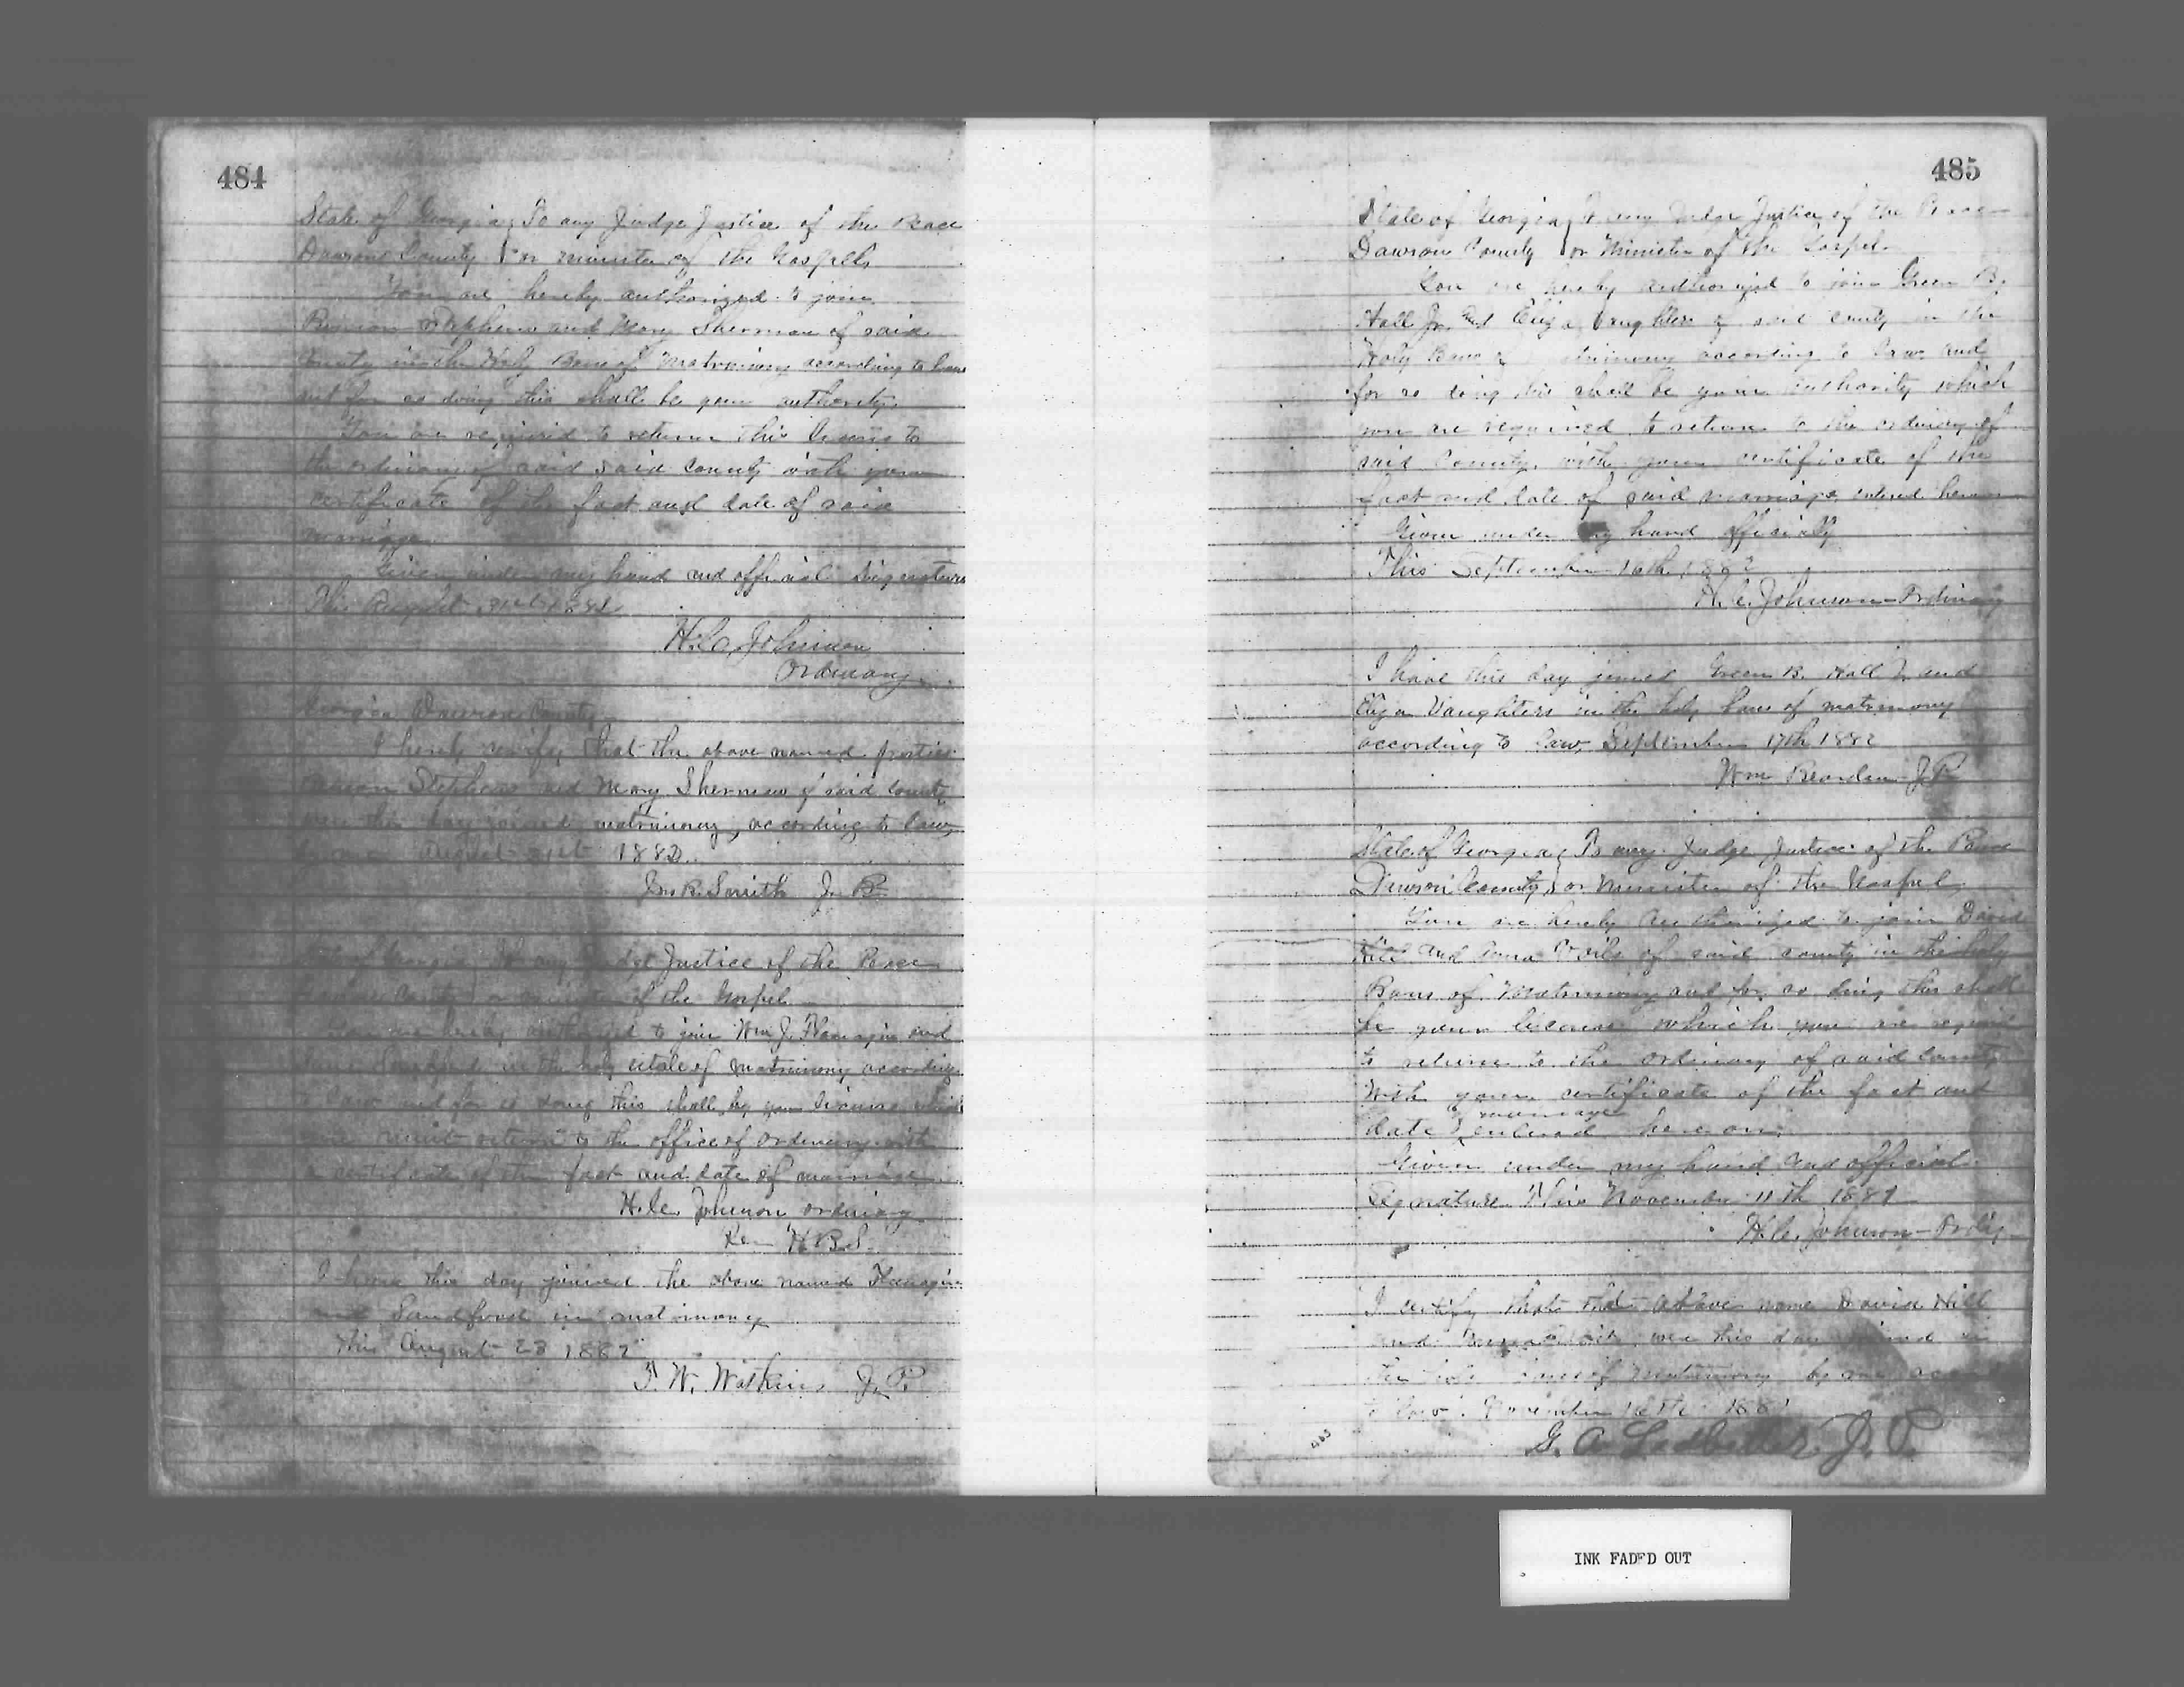 484
State of Georgia } To any Judge Justice of the Peace
Dawson County } or minister of the Gospell
You are hereby authorized to join
Stephens and Mary Sherman of said
County in the Holy Bans of Matrimony according to law
and for so doing this shall be your authority
You are required to return this license to
the ordinary of said said County with your
certificate of the fact and date of said
marriage
Given under my hand and official signature
This August 31st
H. C. Johnson
Ordinary
Georgia Dawson County
I hereby certify that the above named parties
Stephens and Mary Sherman of said County
were this day joined matrimony according to law
by me August 31st 1882
Jno. R. Smith J. P.
State of Georgia To any Judge Justice of the Peace
County or minister of the Gospel
You are hereby authorized to join Wm J. Flanagin and
in the holy state of matrimony according
to law and for so doing this shall be your license which
you must return to the office of ordinary with
a certificate of the fact and date of marriage
H. C. Johnson ordinary
H. B. S.
I have this day joined the above named Flanagin
and Sandford in matrimony
this August 23 1882
T. W. Watkins J. P.
485
State of Georgia } To any Judge Justice of the Peace
Dawson County } or Minister of the Gospel
You are hereby authorized to join Green B.
Hall Jr. and Eliza Vaughters of said county in the
Holy Bans of Matrimony according to law and
for so doing this shall be your authority which
you are required to return to the ordinary of
said County with your certificate of the
fact and date of said marriage entered hereon
Given under my hand officially
This September 16th 1882
H. C. Johnson Ordinary
I have this day joined Green B. Hall Jr and
Eliza Vaughters in the holy bans of matrimony
according to law September 17th 1882
Wm Reardon J.P.
State of Georgia } To any Judge Justice of the Peace
Dawson County } or Minister of the Gospel
You are hereby authorized to join David
Hill and of said county in the holy
Bans of Matrimony and for so doing this shall
be your license which you are required
to return to the ordinary of said County
with your certificate of the fact and
date of marriage entered hereon
Given under my hand and official
Signature This November 11th 1881
H. C. Johnson Ordy
I certify that the above name David Hill
and were this day joined in
the holy bans of matrimony by me
to law November 16th 1881
G. A. Ledbetter J. P.
485
INK FADED OUT